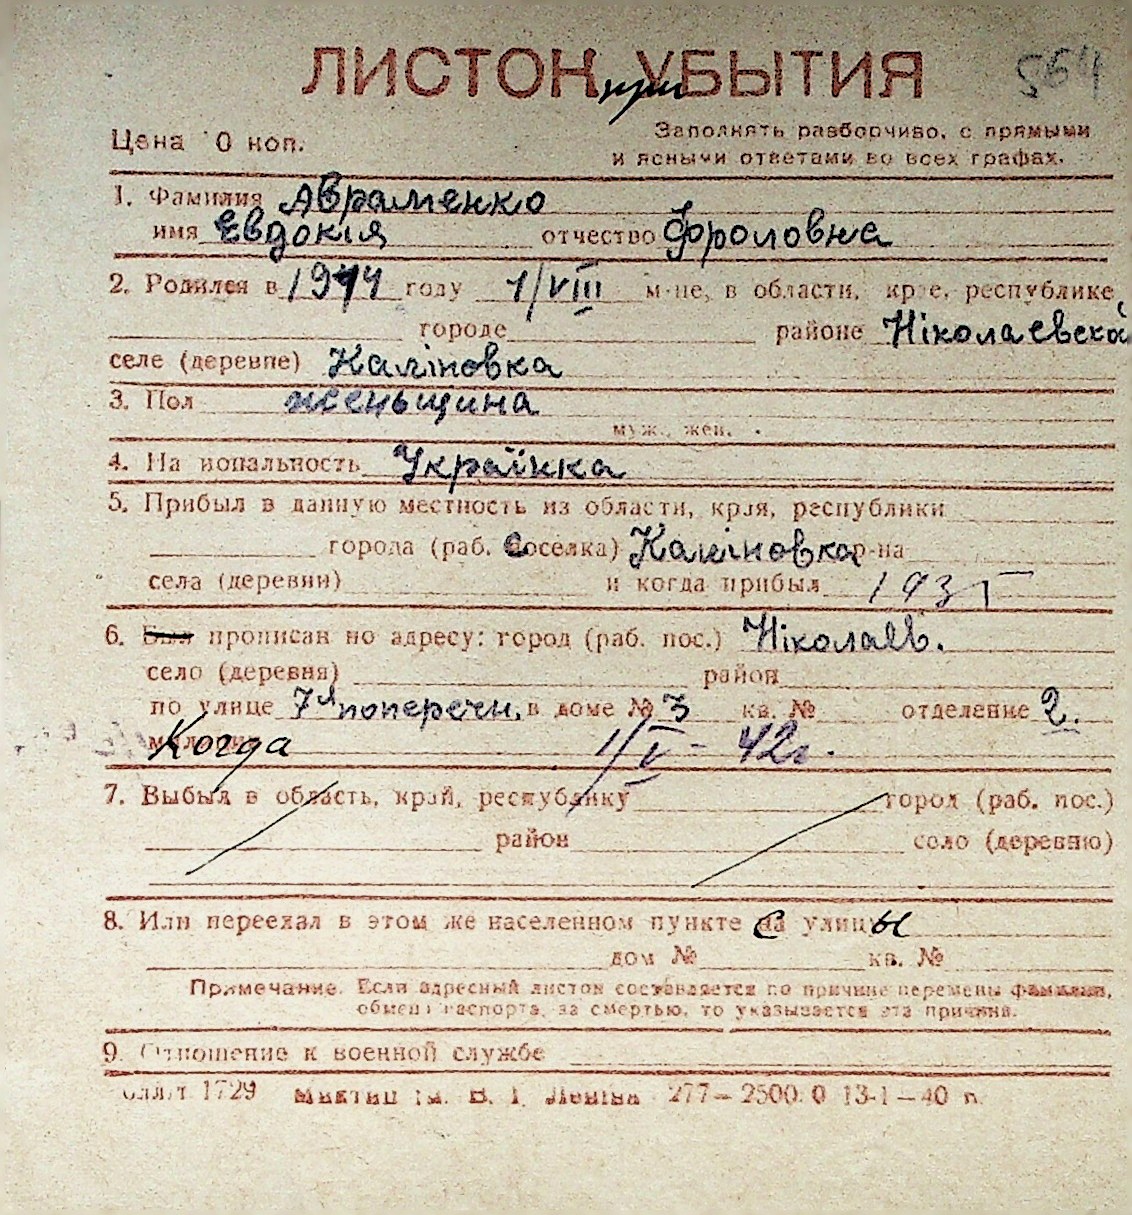 ЛИСТОК при УБЫТИЯ 564
Цена 0 коп.
Заполнять разборчиво, с прямыми
и ясными ответами во всех графах.
1. Фамилия Авраменко
имя Евдокія отчество Фроловна
2. Родился в году 1/VIII м-це, в области, крае, республике,
городе районе Ніколаевска
селе (деревне) Каліновка
3. Пол женьщина
муж., жен.
4. На иональность Українка
5. Прибыл в данную местность из области, края, республики
города (раб. поселка) Каліновка р-на
села (деревни) и когда прибыл 1935
6. Был прописан по адресу: город (раб. пос.) Ніколаев.
село (деревня) район
по улице 7я поперечн. в доме № 3 кв. № отделение 2.
милиции Когда 1/V - 42г.
7. Выбыл в область, край, республику город (раб. пос.)
район село (деревню)
8. Или переехал в этом же населенном пункте с улицы
дом № кв. №
Примечание. Если адресный листок составляется по причине перемены фамилии,
обмена паспорта, за смертью, то указывается эта причина.
9. Отношение к военной службе
1729 ім. В. І. Леніна 277—2500.0 13-1—40 п.